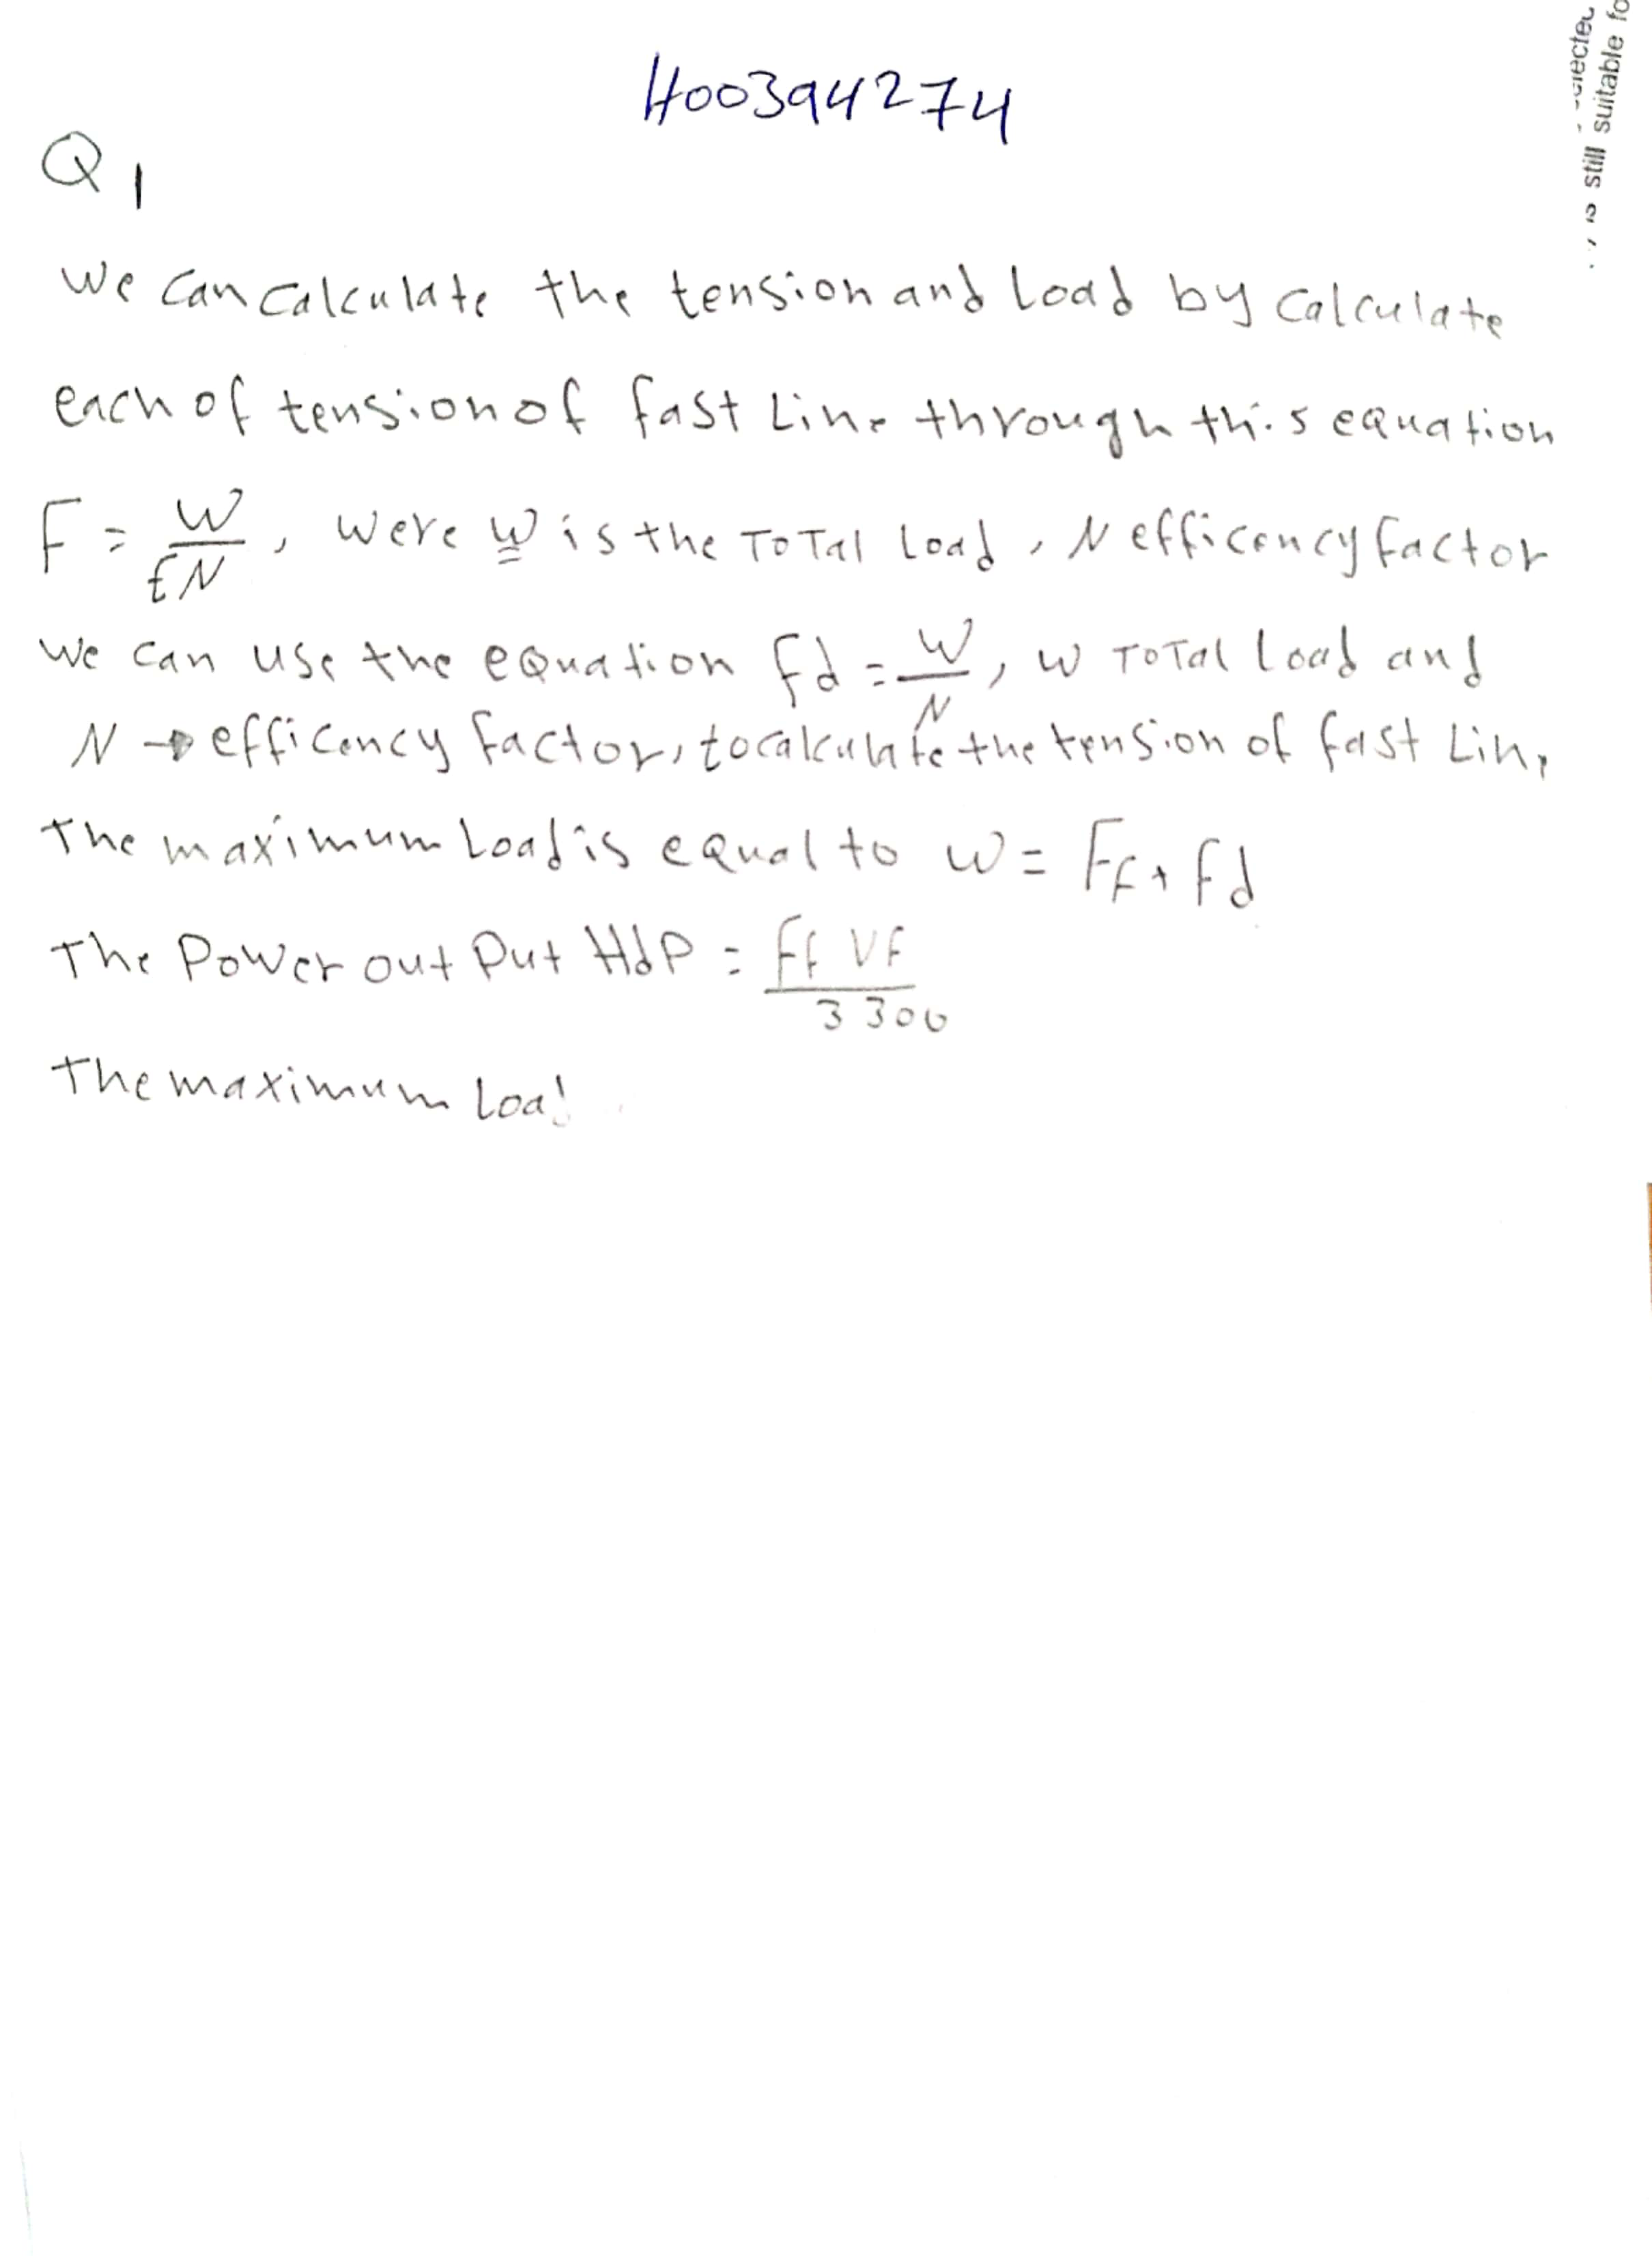 H00394274
Q1
We can calculate the tension and Load by calculate
each of tension of fast Line through this equation
F = W / EN , were W is the ToTal Load , N efficency factor
we can use the equation Fd = W / N , w ToTal load and
N → efficency factor, to calculate the tension of fast Line
The maximum Load is equal to w = Ff + Fd
The Power out Put HdP = Ff VF / 3300
The maximum Load
still suitable fo